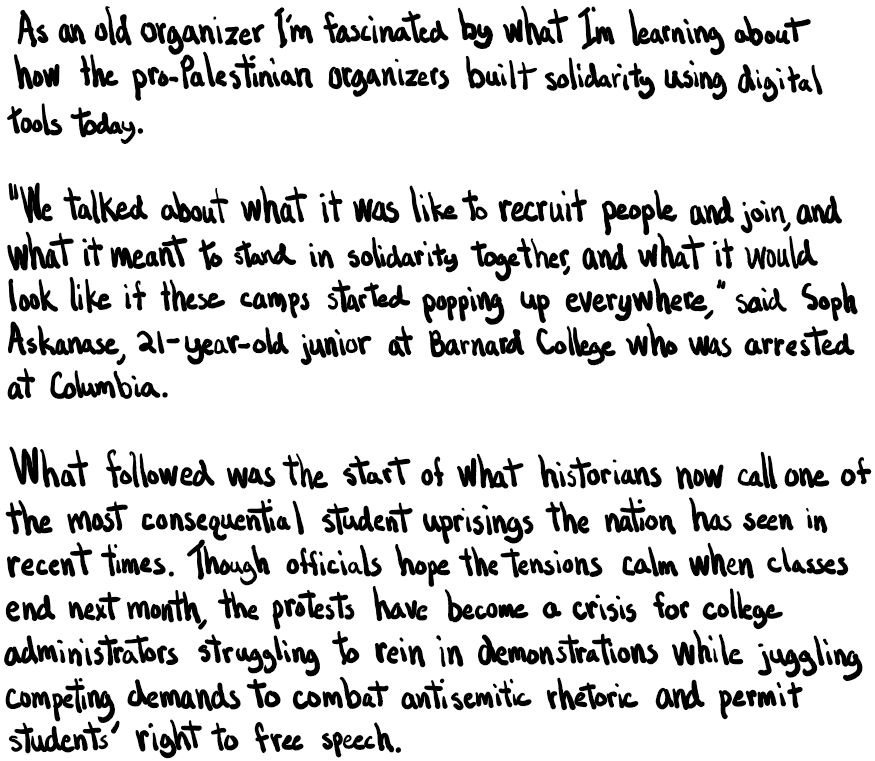 As an old organizer I'm fascinated by what I'm learning about
how the pro-Palestinian organizers built solidarity using digital
tools today.
"We talked about what it was like to recruit people and join, and
what it meant to stand in solidarity together, and what it would
look like if these camps started popping up everywhere," said Soph
Askanase, 21-year-old junior at Barnard College who was arrested
at Columbia.
What followed was the start of what historians now call one of
the most consequential student uprisings the nation has seen in
recent times. Though officials hope the tensions calm when classes
end next month, the protests have become a crisis for college
administrators struggling to rein in demonstrations while juggling
competing demands to combat antisemitic rhetoric and permit
students' right to free speech.